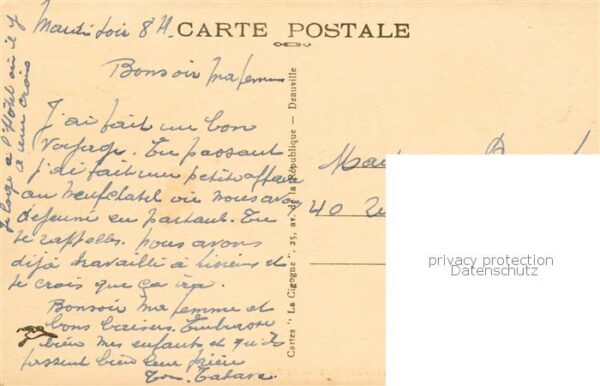 Mardi soir 8 H.
CARTE POSTALE
Bonsoir ma femme
J'ai fait un bon
voyage. En passant
j'ai fait une petite affaire
au Neufchatel où nous avons
déjeuné en partant. Tu
te rappelles. nous avons
déjà travaillé à Lisieux et
je crois que ça ira.
Bonsoir ma femme et
bons baisers. Embrasse
bien mes enfants et qu'ils
fassent bien leur prière
Ton
Je loge à l'Hôtel où il y
a une croix
Cartes "La Cigogne", 25, av. de la République - Deauville
40
privacy protection
Datenschutz